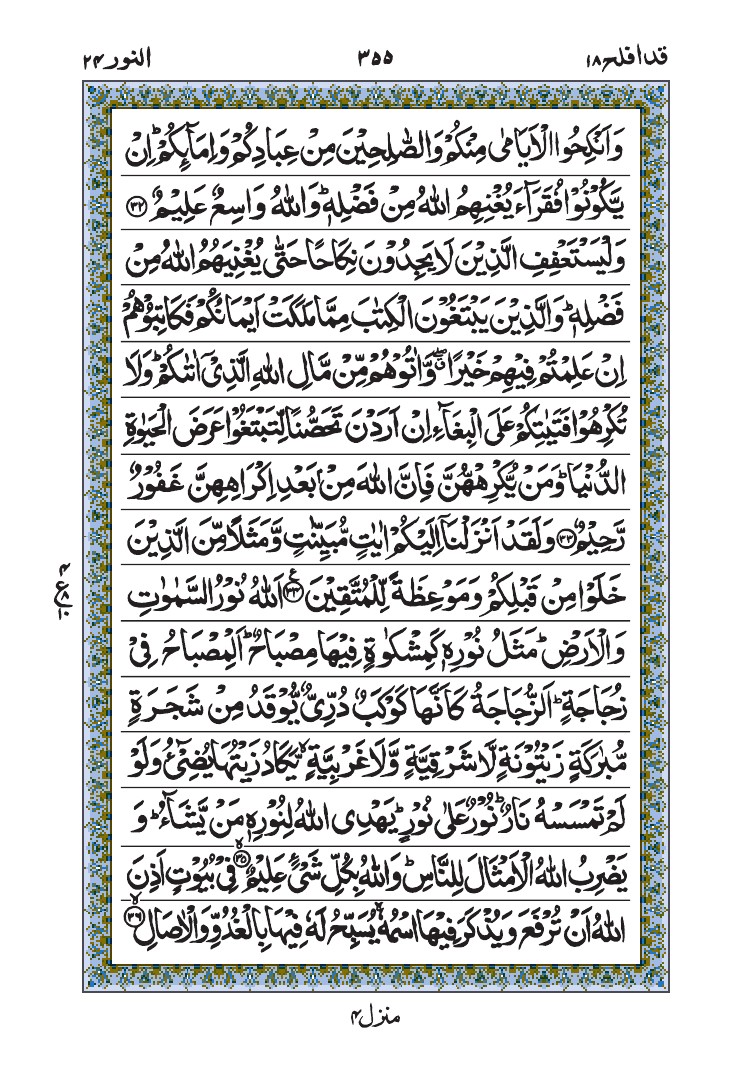 قد افلح ١٨ ٣٥٥ النور ٢٤
وَاَنْكِحُوا الْاَيَامٰى مِنْكُمْ وَالصّٰلِحِيْنَ مِنْ عِبَادِكُمْ وَاِمَآئِكُمْ ؕ اِنْ
يَّكُوْنُوْا فُقَرَآءَ يُغْنِهِمُ اللّٰهُ مِنْ فَضْلِهٖ ؕ وَاللّٰهُ وَاسِعٌ عَلِيْمٌ ﴿٣٢﴾
وَلْيَسْتَعْفِفِ الَّذِيْنَ لَا يَجِدُوْنَ نِكَاحًا حَتّٰى يُغْنِيَهُمُ اللّٰهُ مِنْ
فَضْلِهٖ ؕ وَالَّذِيْنَ يَبْتَغُوْنَ الْكِتٰبَ مِمَّا مَلَكَتْ اَيْمَانُكُمْ فَكَاتِبُوْهُمْ
اِنْ عَلِمْتُمْ فِيْهِمْ خَيْرًا ۖ وَّاٰتُوْهُمْ مِّنْ مَّالِ اللّٰهِ الَّذِيْۤ اٰتٰىكُمْ ؕ وَلَا
تُكْرِهُوْا فَتَيٰتِكُمْ عَلَى الْبِغَآءِ اِنْ اَرَدْنَ تَحَصُّنًا لِّتَبْتَغُوْا عَرَضَ الْحَيٰوةِ
الدُّنْيَا ؕ وَمَنْ يُّكْرِهْهُّنَّ فَاِنَّ اللّٰهَ مِنْۢ بَعْدِ اِكْرَاهِهِنَّ غَفُوْرٌ
رَّحِيْمٌ ﴿٣٣﴾ وَلَقَدْ اَنْزَلْنَاۤ اِلَيْكُمْ اٰيٰتٍ مُّبَيِّنٰتٍ وَّمَثَلًا مِّنَ الَّذِيْنَ
خَلَوْا مِنْ قَبْلِكُمْ وَمَوْعِظَةً لِّلْمُتَّقِيْنَ ﴿٣٤﴾ ع اَللّٰهُ نُوْرُ السَّمٰوٰتِ
وَالْاَرْضِ ؕ مَثَلُ نُوْرِهٖ كَمِشْكٰوةٍ فِيْهَا مِصْبَاحٌ ؕ اَلْمِصْبَاحُ فِيْ
زُجَاجَةٍ ؕ اَلزُّجَاجَةُ كَاَنَّهَا كَوْكَبٌ دُرِّيٌّ يُّوْقَدُ مِنْ شَجَرَةٍ
مُّبٰرَكَةٍ زَيْتُوْنَةٍ لَّا شَرْقِيَّةٍ وَّلَا غَرْبِيَّةٍ ۙ يَّكَادُ زَيْتُهَا يُضِيْٓءُ وَلَوْ
لَمْ تَمْسَسْهُ نَارٌ ؕ نُوْرٌ عَلٰى نُوْرٍ ؕ يَهْدِى اللّٰهُ لِنُوْرِهٖ مَنْ يَّشَآءُ ؕ وَ
يَضْرِبُ اللّٰهُ الْاَمْثَالَ لِلنَّاسِ ؕ وَاللّٰهُ بِكُلِّ شَيْءٍ عَلِيْمٌ ۙ﴿٣٥﴾ فِيْ بُيُوْتٍ اَذِنَ
اللّٰهُ اَنْ تُرْفَعَ وَيُذْكَرَ فِيْهَا اسْمُهٗ ۙ يُسَبِّحُ لَهٗ فِيْهَا بِالْغُدُوِّ وَالْاٰصَالِ ۙ﴿٣٦﴾
منزل ٤